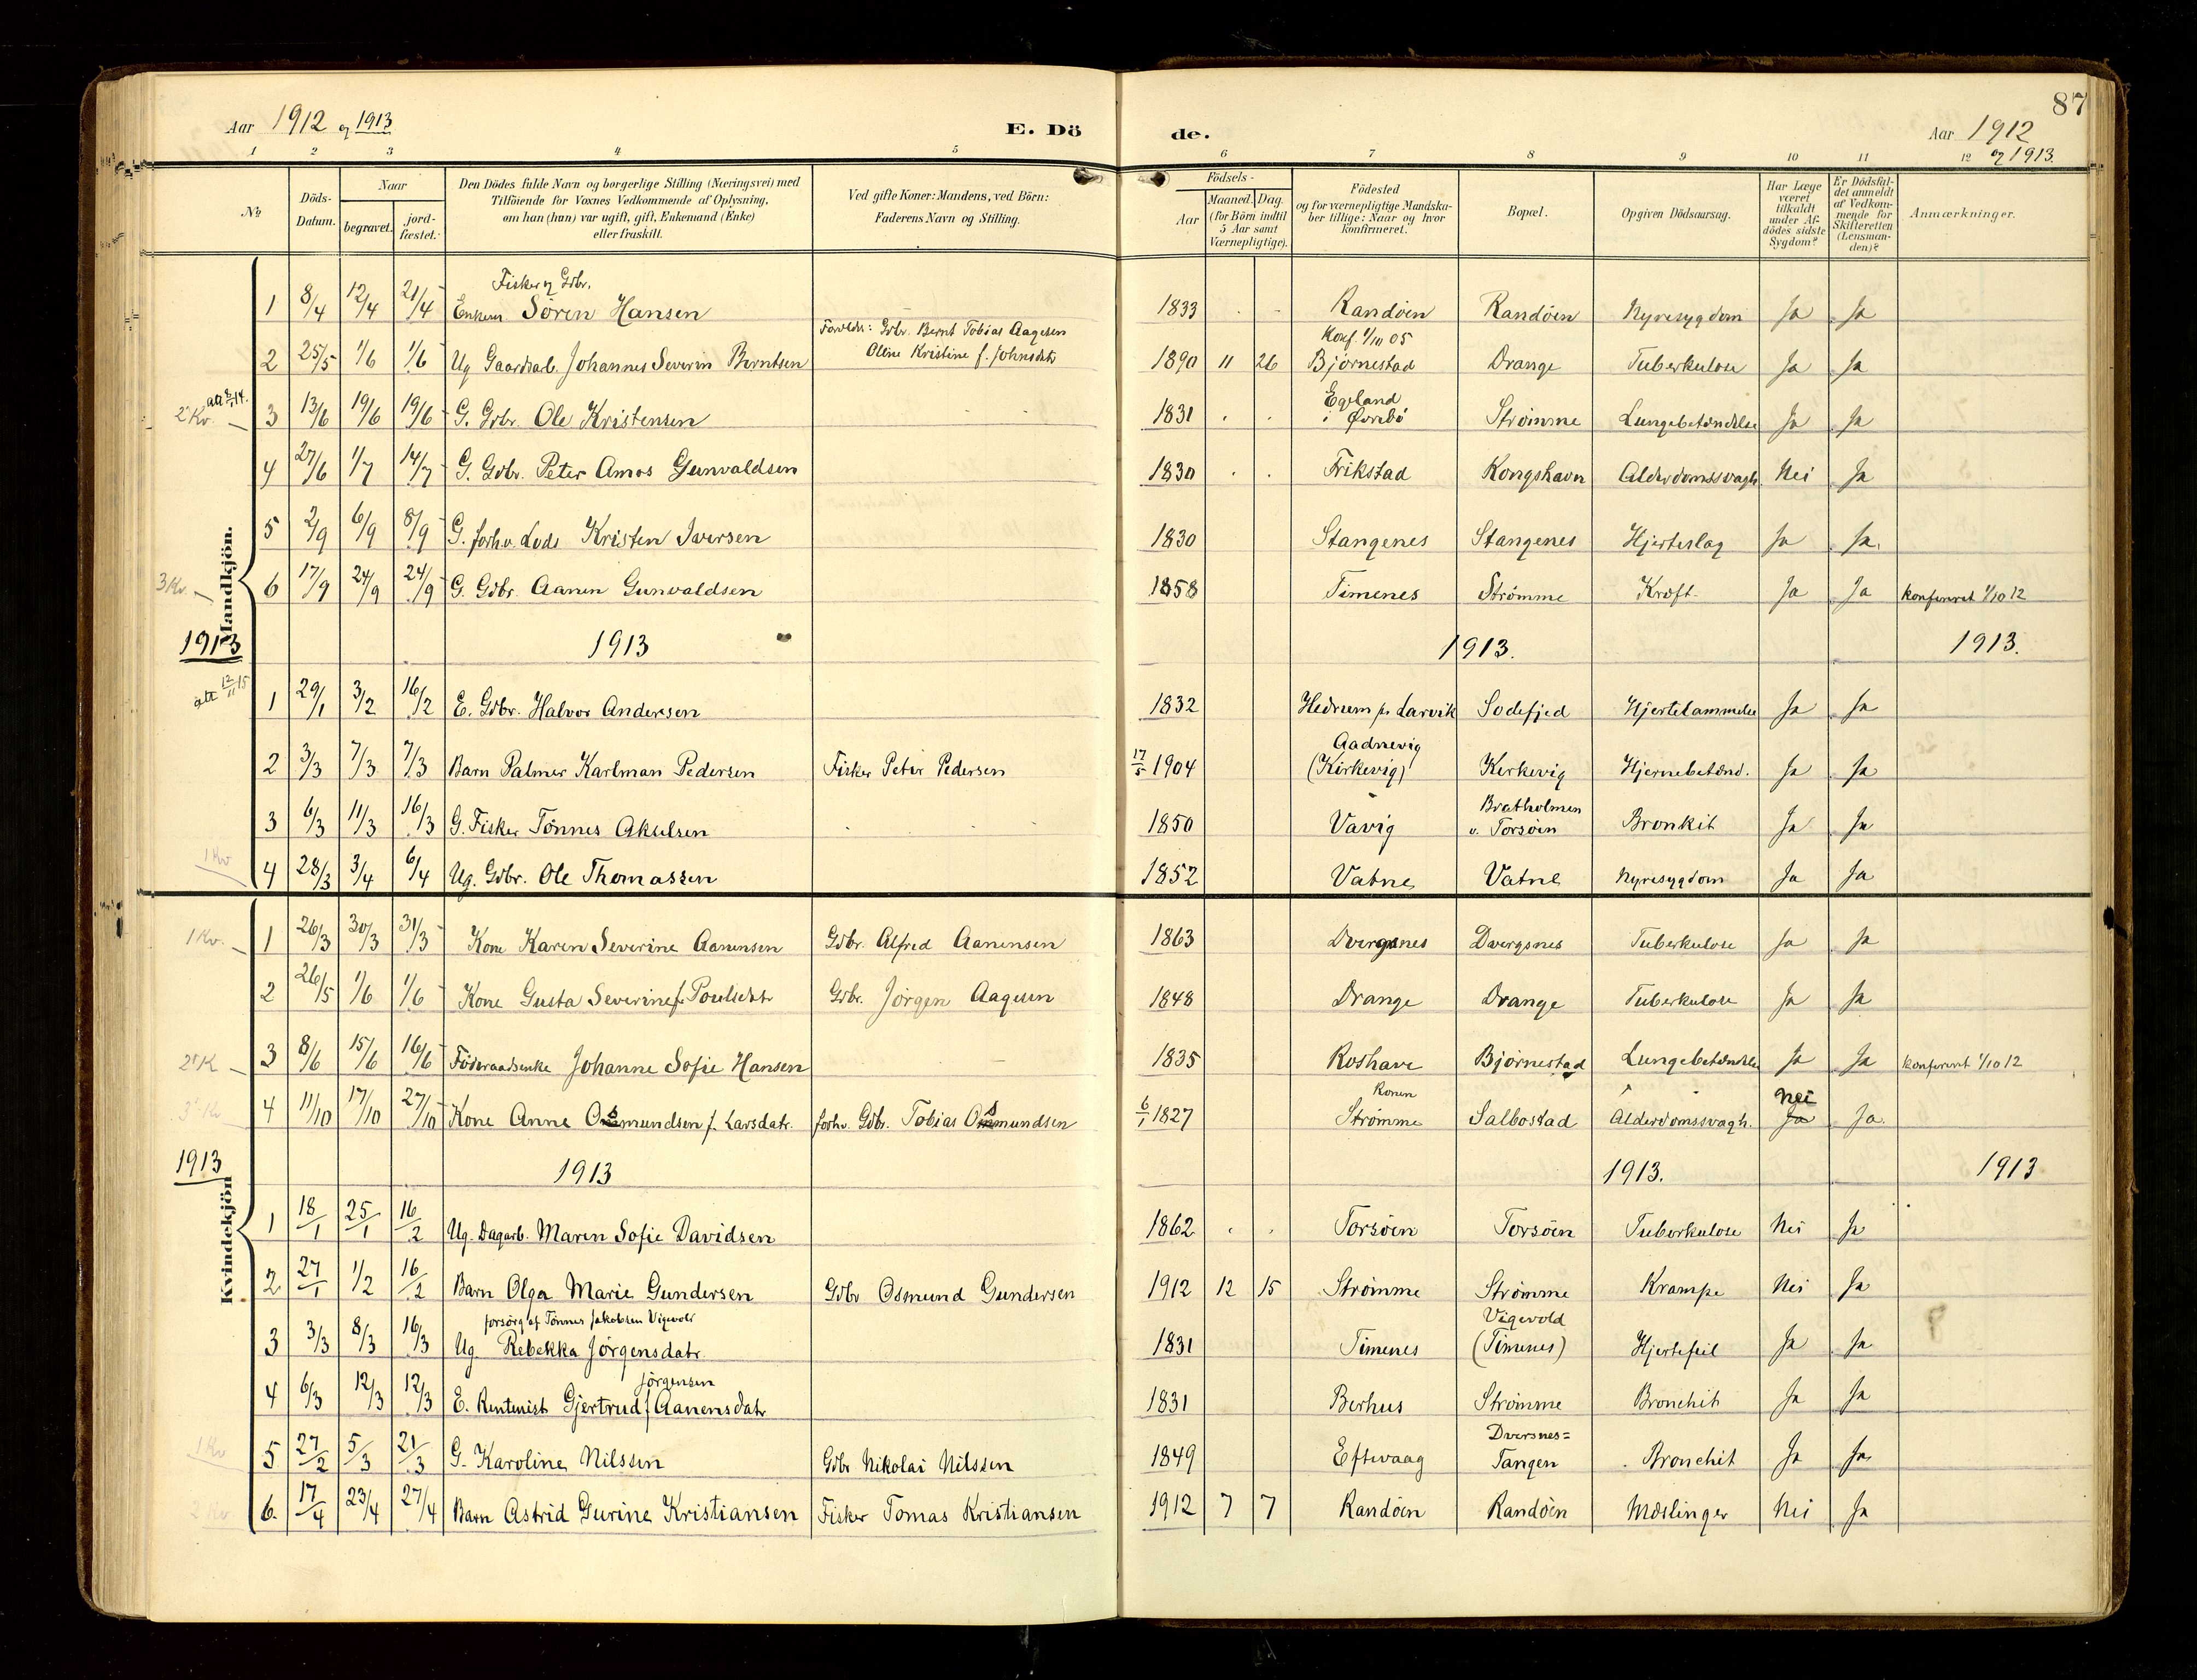 87
Aar 1912 og 1913
E. Dö de.
Aar 1912
og 1913.
1 2 3 4 5 6 7 8 9 10 11 12
No.
Döds-Datum.
Naar
begravet.
jord-fæstet.
Den Dödes fulde Navn og borgerlige Stilling (Næringsvei) med
Tilföiende for Voxnes Vedkommende af Oplysning,
om han (hun) var ugift, gift, Enkemand (Enke)
eller fraskilt.
Ved gifte Koner: Mandens, ved Börn:
Faderens Navn og Stilling.
Födsels-
Aar
Maaned. Dag.
(for Börn indtil
5 Aar samt
Værnepligtige).
Födested
og for værnepligtige Mandska-
ber tillige: Naar og hvor
konfirmeret.
Bopæl.
Opgiven Dödsaarsag.
Har Læge
været
tilkaldt
under Af-
dödes sidste
Sygdom?
Er Dödsfal-
det anmeldt
af Vedkom-
mende for
Skifteretten
(Lensman-
den)?
Anmærkninger.
Mandkjön.
Fisker og Gdbr.
1 8/4 12/4 21/4 Enkem. Sören Hansen 1833 Randøen Randøen Nyresygdom Ja Ja
Forældr: Gdbr. Bernt Tobias Aagesen
Konf. 1/10 05
2 25/5 1/6 1/6 Ug Gaardsarb. Johannes Severin Berntsen Oline Kristine f. Johnsdtr 1890 11 26 Bjørnestad Drange Tuberkulose Ja Ja
att 14.
2' Kv.
Egeland
3 13/6 19/6 19/6 G. Gdbr. Ole Kristensen 1831 i Øvrebö Strømme Lungebetændelse Ja Ja
4 27/6 1/7 14/7 G. Gdbr. Peter Amos Gunvaldsen 1830 Frikstad Kongshavn Alderdomssvagh. Nei Ja
5 2/9 6/9 8/9 G. forhv. Lods Kristen Iversen 1830 Stangenes Stangenes Hjerteslag Ja Ja.
3 Kv.
6 17/9 24/9 24/9 G. Gdbr. Aanen Gunvaldsen 1858 Timenes Strømme Kræft Ja Ja konferert 1/10 12
1913 1913 1913. 1913.
att 12/11 15
1 29/1 3/2 16/2 E. Gdbr. Halvor Andersen 1832 Hedrum pr Larvik Sodefjed Hjertelammelse Ja Ja
Aadnevig
2 3/3 7/3 7/3 Barn Palmer Karlman Pedersen Fisker Peter Pedersen 17/5 1904 (Kirkevig) Kirkevig Hjernebetænd. Ja Ja
Bratholmen
3 6/3 11/3 16/3 G. Fisker Tönnes Akselsen 1850 Vavig v. Torsøen Bronkit Ja Ja
1 Kv
4 28/3 3/4 6/4 Ug. Gdbr. Ole Thomassen 1852 Vatne Vatne Nyresygdom Ja Ja
Kvindekjön
1 Kv.
1 26/3 30/3 31/3 Kone Karen Severine Aanensen Gdbr. Alfred Aanensen 1863 Dvergsnes Dvergsnes Tuberkulose Ja Ja
2 26/5 1/6 1/6 Kone Gusta Severine f. Poulsdatr Gdbr. Jörgen Aagesen 1848 Drange Drange Tuberkulose Ja Ja
2' K
3 8/6 15/6 16/6 Föderaadsenke Johanne Sofie Hansen 1835 Roshave Bjørnestad Lungebetændelse Ja Ja konferert 1/10 12
3' Kv
Konen
nei
4 11/10 17/10 27/10 Kone Anne Osmundsen f. Larsdatr. forhv. Gdbr. Tobias Osmundsen 6/1 1827 Strømme Salbostad Alderdomssvagh. Ja Ja.
1913 1913 1913. 1913
1 18/1 25/1 16/2 Ug. Dagarb. Maren Sofie Davidsen 1862 Torsøen Torsøen Tuberkulose Nei Ja
2 27/1 1/2 16/2 Barn Olga Marie Gundersen Gdbr Osmund Gundersen 1912 12 15 Strømme Strømme Krampe Nei Ja
forsörg af Tönnes Jakobsen Vigevold
Vigevold
3 3/3 8/3 16/3 Ug. Rebekka Jörgensdatr. 1831 Timenes (Timenes) Hjertefeil Ja Ja
Jörgensen
4 6/3 12/3 12/3 E. Rentenist Gjertrud f Aanensdatr 1831 Berhus Strømme Bronchit Ja Ja
Dversnes=
1 Kv
5 27/2 5/3 21/3 G. Karoline Nilssen Gdbr Nikolai Nilssen 1849 Eftevaag Tangen Bronchit Ja Ja
2 Kv
6. 17/4 23/4 27/4 Barn Astrid Gurine Kristiansen Fisker Tomas Kristiansen 1912 7 7 Randøen Randøen Mæslinger Nei Ja